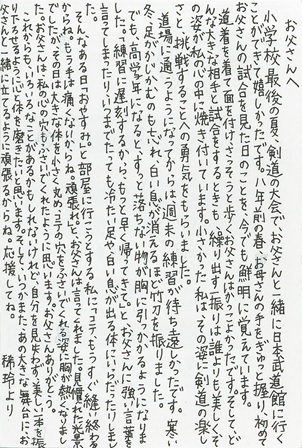 お父さんへ
小学校最後の夏、剣道の大会でお父さんと一緒に日本武道館に行く
ことができて嬉しかったです。八年前の春、お母さんの手をぎゅっと握り、初め
お父さんの試合を見た日のことを、今でも鮮明に覚えています。
道着を着て面を付け、さっそうと歩くお父さんはかっこよかったです。そして、ど
んな大きな相手と試合をするときも、繰り出す一振りは誰よりも美しく、そ
の姿が私の心の中に焼き付いています。小さかった私はその姿に剣道の楽し
さと、挑戦することへの勇気をもらいました。
道場に通うようになってからは、週末の練習が待ち遠しかったです。寒い
冬、足がかじかむのも忘れ、白い息が消えるほど竹刀を振りました。
でも、高学年になると、すっと落ちない物が胸に引っかかるようになりま
した。「練習に遅刻するから、もっと早く帰ってきて。」とお父さんに強い言葉を
言ってしまったり、いつまでたっても冷たい足や白い息が出る体にいらだったりしまし
た。
そんなある日「おやすみ。」と部屋に行こうとする私に「コテもうすぐ縫い終わる
からね。もう手は痛くないからね。頑張れ。」と、お父さんは言ってくれました。見慣れた光景
でしたが、その日は大きな体を小さく丸め、コテの穴をふさいでくれる姿に胸が熱くなりま
した。お父さんは、私の心の穴もふさいでくれたように思います。お父さん、ありがとう。
これからもいろいろなことがあるかもしれないけれど、自分を見失わず美しい一本を振
れるように心と体を磨きたいと思います。そして、いつかまた、あの大きな舞台にお
父さんと一緒に立てるように頑張るからね。応援してね。
稀玲より